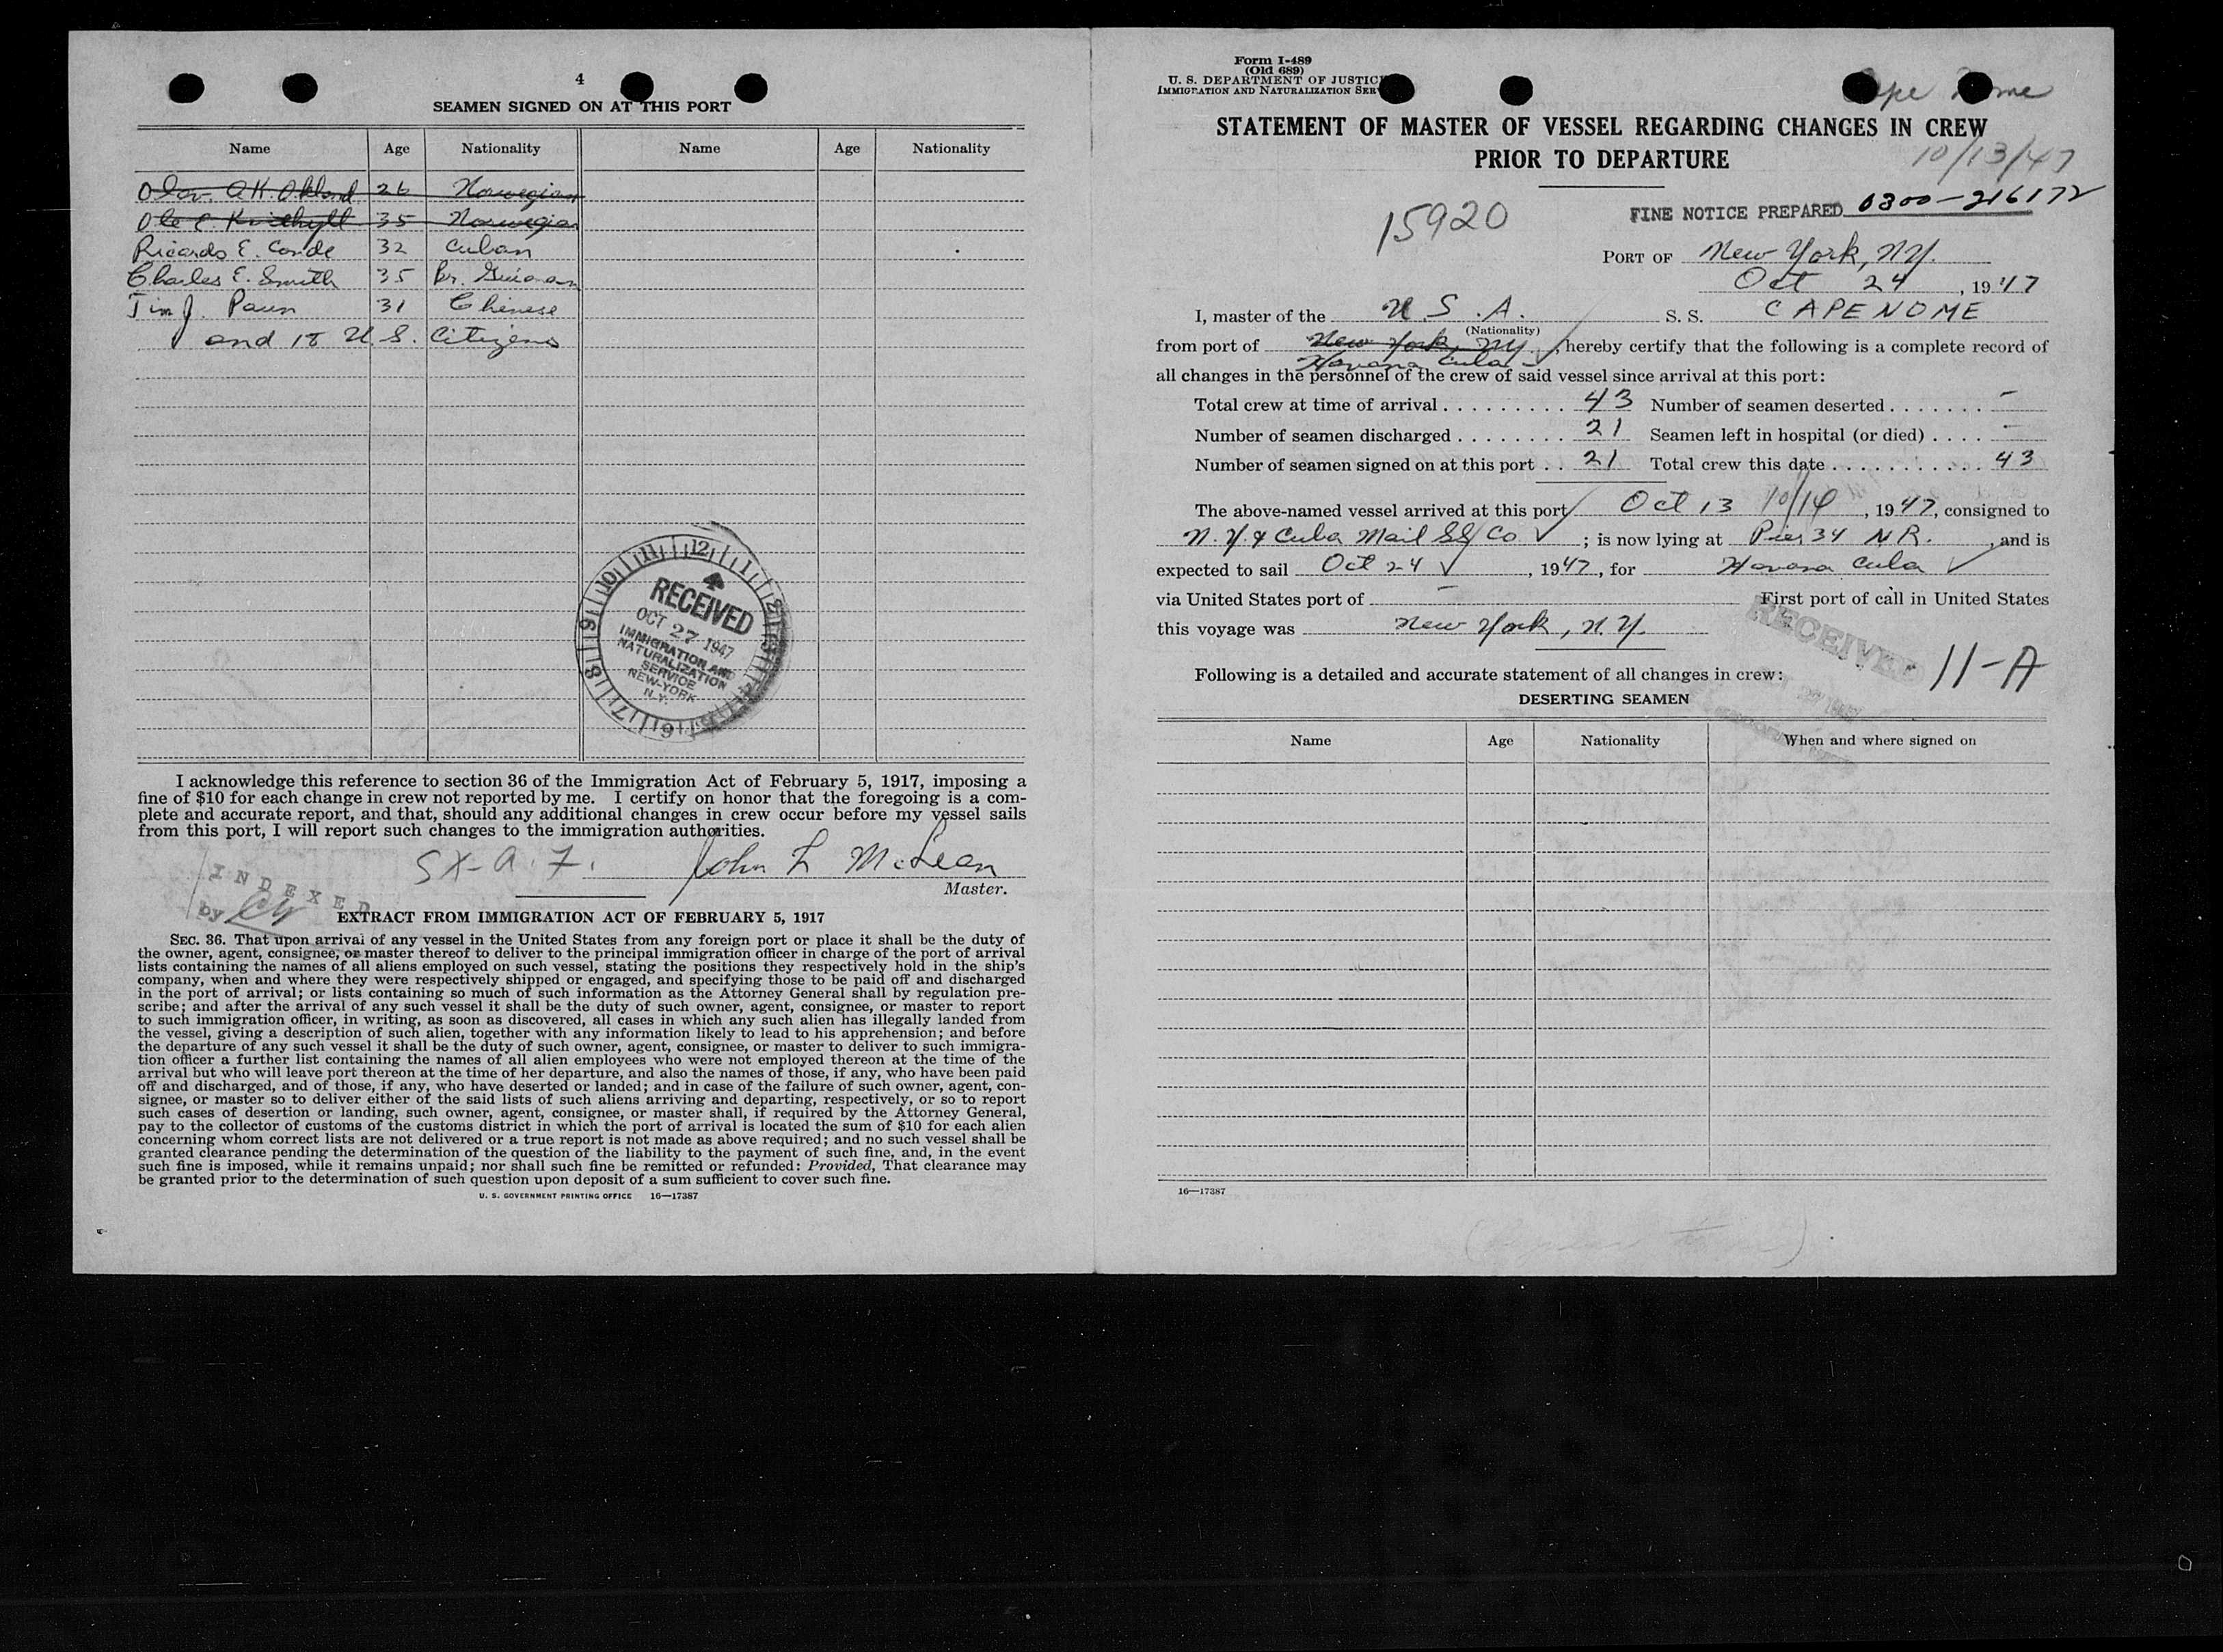 4
SEAMEN SIGNED ON AT THIS PORT
Name Age Nationality Name Age Nationality
Olav. A.K. Okland 26 Norwegian
Ole E. 35 Norwegian
Ricardo E. Conde 32 Cuban
Charles E. Smith 35 Br. Guianan
Tim J. Paun 31 Chinese
and 18 U.S. Citizens
RECEIVED
OCT 27 1947
IMMIGRATION AND
NATURALIZATION
SERVICE
NEW-YORK
N-Y.
I acknowledge this reference to section 36 of the Immigration Act of February 5, 1917, imposing a
fine of $10 for each change in crew not reported by me. I certify on honor that the foregoing is a com-
plete and accurate report, and that, should any additional changes in crew occur before my vessel sails
from this port, I will report such changes to the immigration authorities.
SX-A.7. John L McLean
Master.
INDEXED
by
EXTRACT FROM IMMIGRATION ACT OF FEBRUARY 5, 1917
SEC. 36. That upon arrival of any vessel in the United States from any foreign port or place it shall be the duty of
the owner, agent, consignee, or master thereof to deliver to the principal immigration officer in charge of the port of arrival
lists containing the names of all aliens employed on such vessel, stating the positions they respectively hold in the ship's
company, when and where they were respectively shipped or engaged, and specifying those to be paid off and discharged
in the port of arrival; or lists containing so much of such information as the Attorney General shall by regulation pre-
scribe; and after the arrival of any such vessel it shall be the duty of such owner, agent, consignee, or master to report
to such immigration officer, in writing, as soon as discovered, all cases in which any such alien has illegally landed from
the vessel, giving a description of such alien, together with any information likely to lead to his apprehension; and before
the departure of any such vessel it shall be the duty of such owner, agent, consignee, or master to deliver to such immigra-
tion officer a further list containing the names of all alien employees who were not employed thereon at the time of the
arrival but who will leave port thereon at the time of her departure, and also the names of those, if any, who have been paid
off and discharged, and of those, if any, who have deserted or landed; and in case of the failure of such owner, agent, con-
signee, or master so to deliver either of the said lists of such aliens arriving and departing, respectively, or so to report
such cases of desertion or landing, such owner, agent, consignee, or master shall, if required by the Attorney General,
pay to the collector of customs of the customs district in which the port of arrival is located the sum of $10 for each alien
concerning whom correct lists are not delivered or a true report is not made as above required; and no such vessel shall be
granted clearance pending the determination of the question of the liability to the payment of such fine, and, in the event
such fine is imposed, while it remains unpaid; nor shall such fine be remitted or refunded: Provided, That clearance may
be granted prior to the determination of such question upon deposit of a sum sufficient to cover such fine.
U. S. GOVERNMENT PRINTING OFFICE 16—17387
Form I-489
(Old 689)
U. S. DEPARTMENT OF JUSTICE
IMMIGRATION AND NATURALIZATION SER
STATEMENT OF MASTER OF VESSEL REGARDING CHANGES IN CREW
PRIOR TO DEPARTURE
10/13/47
15920
FINE NOTICE PREPARED 0300-216172
PORT OF New York, N.Y.
Oct 24, 1947
I, master of the U.S.A. S. S. CAPE NOME
(Nationality)
from port of New York, NY, hereby certify that the following is a complete record of
Havana Cuba
all changes in the personnel of the crew of said vessel since arrival at this port:
Total crew at time of arrival . . . . . . . . . 43 Number of seamen deserted . . . . . . . –
Number of seamen discharged . . . . . . . . 21 Seamen left in hospital (or died) . . . . –
Number of seamen signed on at this port . . 21 Total crew this date . . . . . . . . . . . 43
The above-named vessel arrived at this port Oct 13 10/14, 1947, consigned to
N.Y. & Cuba Mail SS Co ; is now lying at Pier 34 N R. , and is
expected to sail Oct 24, 1947, for Havana Cuba
via United States port of – First port of call in United States
this voyage was New York, N.Y.
RECEIVED
11-A
Following is a detailed and accurate statement of all changes in crew:
DESERTING SEAMEN
Name Age Nationality When and where signed on
16—17387